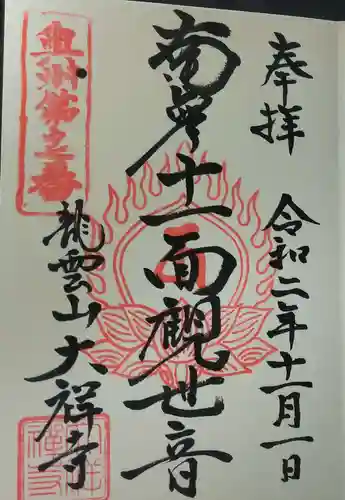 奉拝
令和二年十一月一日
南無十一面観世音
龍雲山大祥寺
奥州第三番